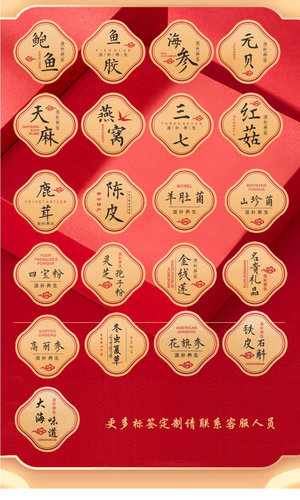 鲍鱼
滋补养生
鱼胶
FISH GLUE
滋补养生
海参
滋补养生
元贝
滋补养生
天麻
滋补养生
燕窝
三七
滋补养生
红菇
滋补养生
鹿茸
VELVET ANTLER
陈皮
MOREL
羊肚菌
滋补养生
MOUNTAIN FUNGUS
山珍菌
滋补养生
FOUR TREASURES POWDER
四宝粉
滋补养生
灵芝孢子粉
金线莲
名贵礼品
GORYEO GINSENG
高丽参
滋补养生
冬虫夏草
AMERICAN GINSENG
花旗参
滋补养生
铁皮石斛
大海味道
更多标签定制请联系客服人员